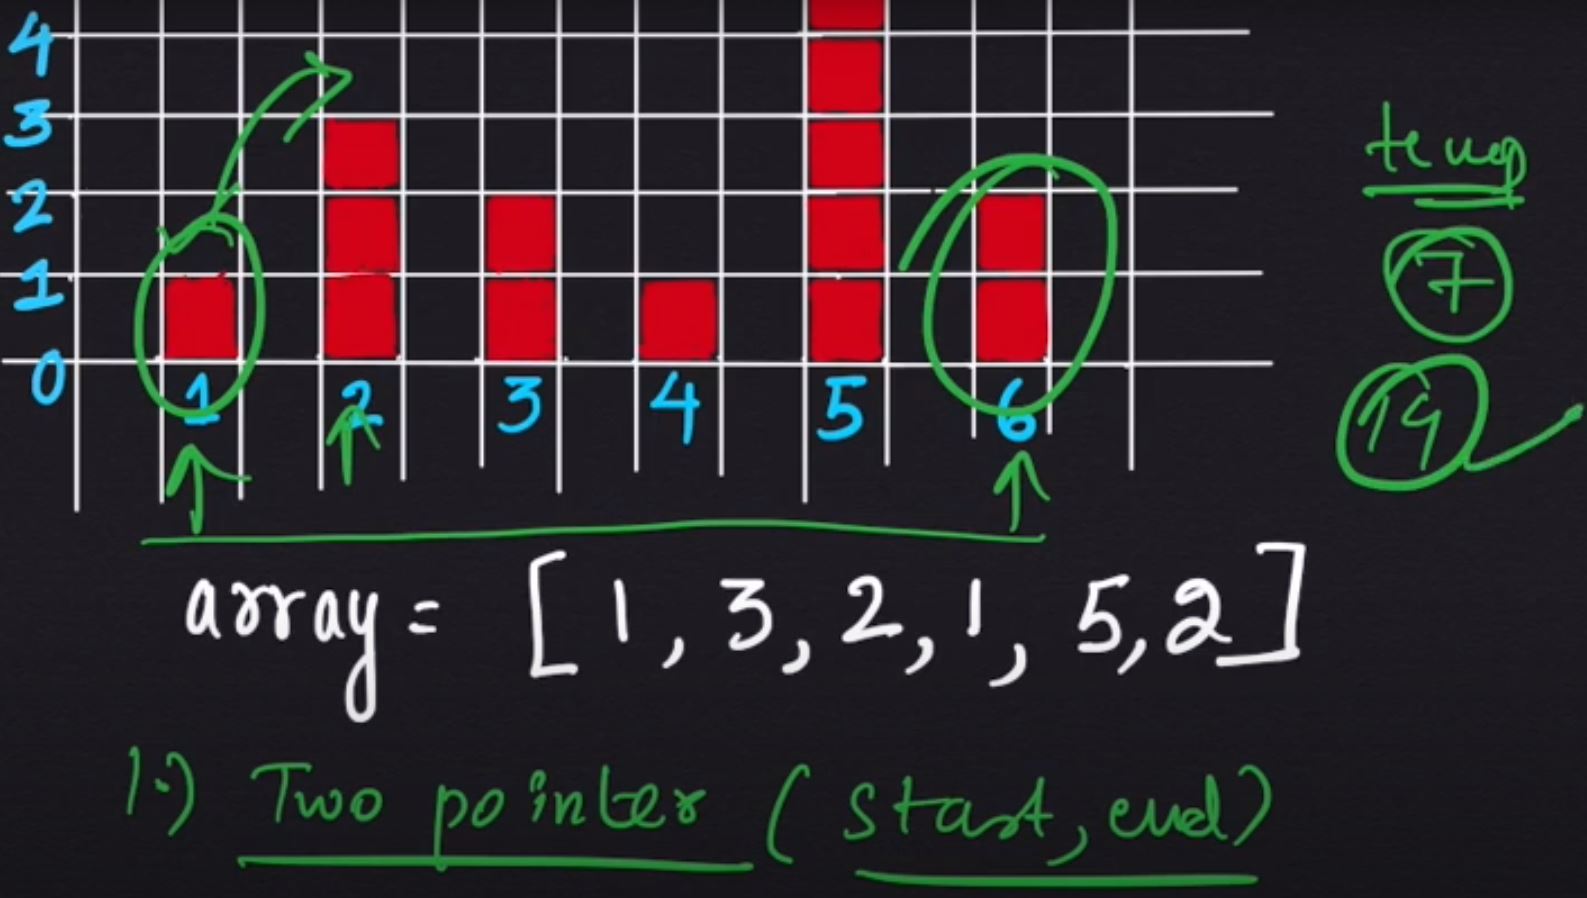 4
3
2
1
0
1 2 3 4 5 6
temp
7
14
array = [1, 3, 2, 1, 5, 2]
1.) Two pointer (start, end)